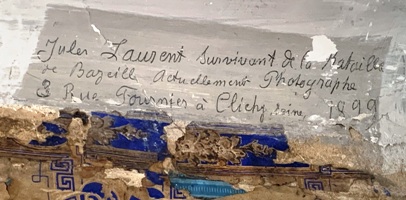 Jules Laurent Survivant de la Bataille
de Bazeill Actuellement Photographe
8 Rue Fournier à Clichy, seine, 1899